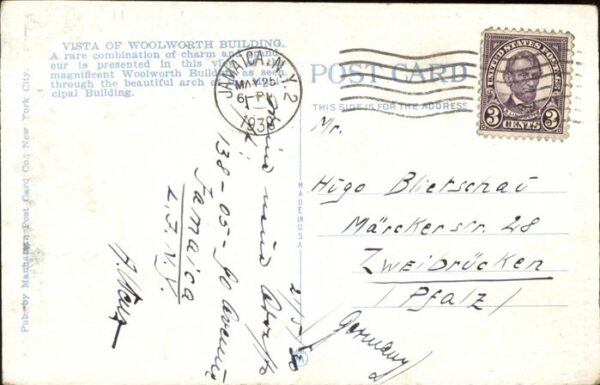 VISTA OF WOOLWORTH BUILDING.
A rare combination of charm and
eur is presented in this
magnificent Woolworth as seen
through the beautiful arch
cipal Building.
Pub. by Manhattan Post Card Co., New York City.
JAMAICA, N.Y. 2
MAY 25
6 PM
POST CARD
THIS SIDE IS FOR THE ADDRESS
UNITED STATES POSTAGE
LINCOLN
3 CENTS 3
MADE IN USA
138-05-90 Avenue
Jamaica
L.I. N.Y.
Mr.
Hugo Blietschau
Märckerstr. 28
Zweibrücken
/Pfalz/
Germany